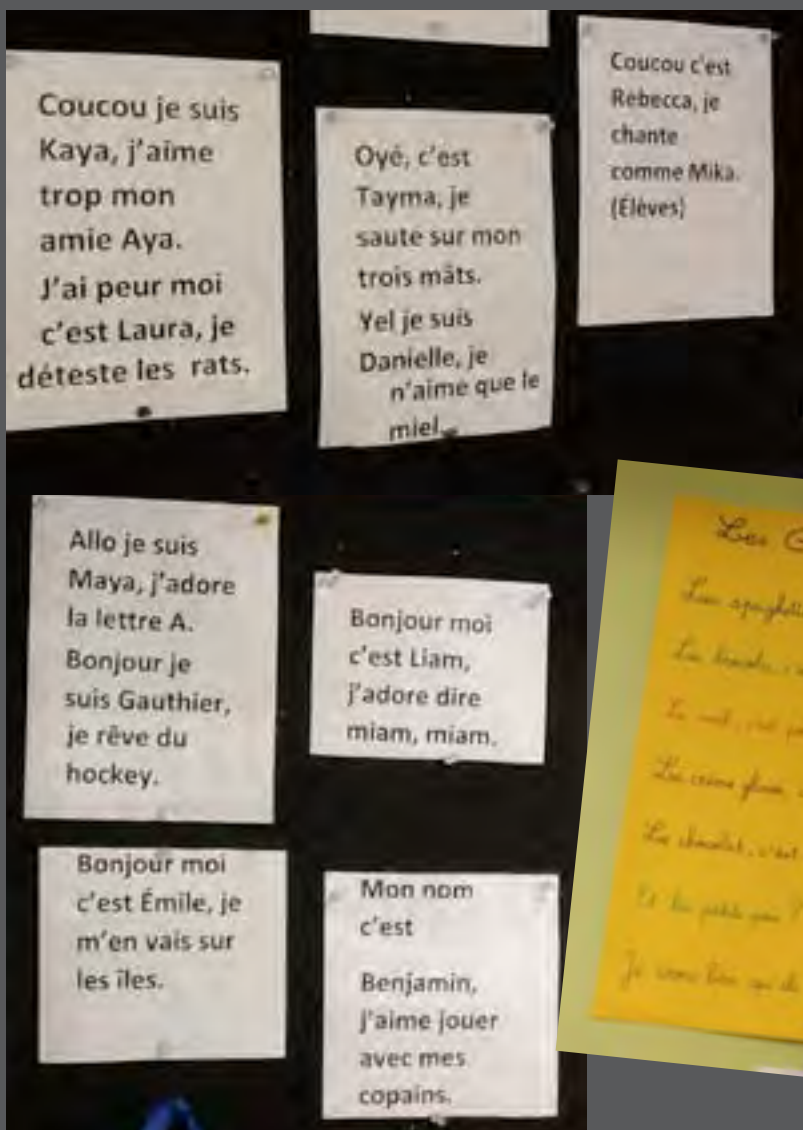 Coucou je suis
Kaya, j'aime
trop mon
amie Aya.
J'ai peur moi
c'est Laura, je
déteste les rats.
Oyé, c'est
Tayma, je
saute sur mon
trois mâts.
Yel je suis
Danielle, je
n'aime que le
miel.
Coucou c'est
Rebecca, je
chante
comme Mika.
(Élèves)
Allo je suis
Maya, j'adore
la lettre A.
Bonjour je
suis Gauthier,
je rêve du
hockey.
Bonjour moi
c'est Liam,
j'adore dire
miam, miam.
Bonjour moi
c'est Émile, je
m'en vais sur
les îles.
Mon nom
c'est
Benjamin,
j'aime jouer
avec mes
copains.
Les
Les spaghetti
Les
Le
La crème glacée,
Le chocolat, c'est
Et les petits pois ?
Je